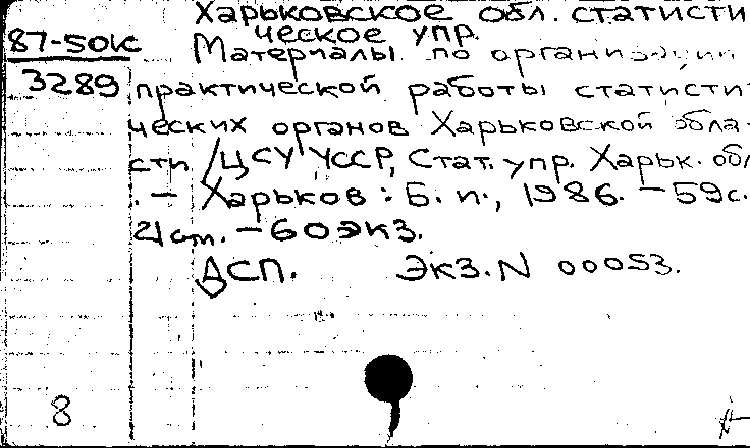 Харьковское обл. статисти
ческое упр.
87-50к
Материалы по организации
3289
практической работы статисти-
ческих органов Харьковской обла-
сти / ЦСУ УССР, Стат. упр. Харьк. обл
. - Харьков : Б. и., 1986. - 59 с.
21 см. - 60 экз.
ДСП. Экз. N 00053.
8